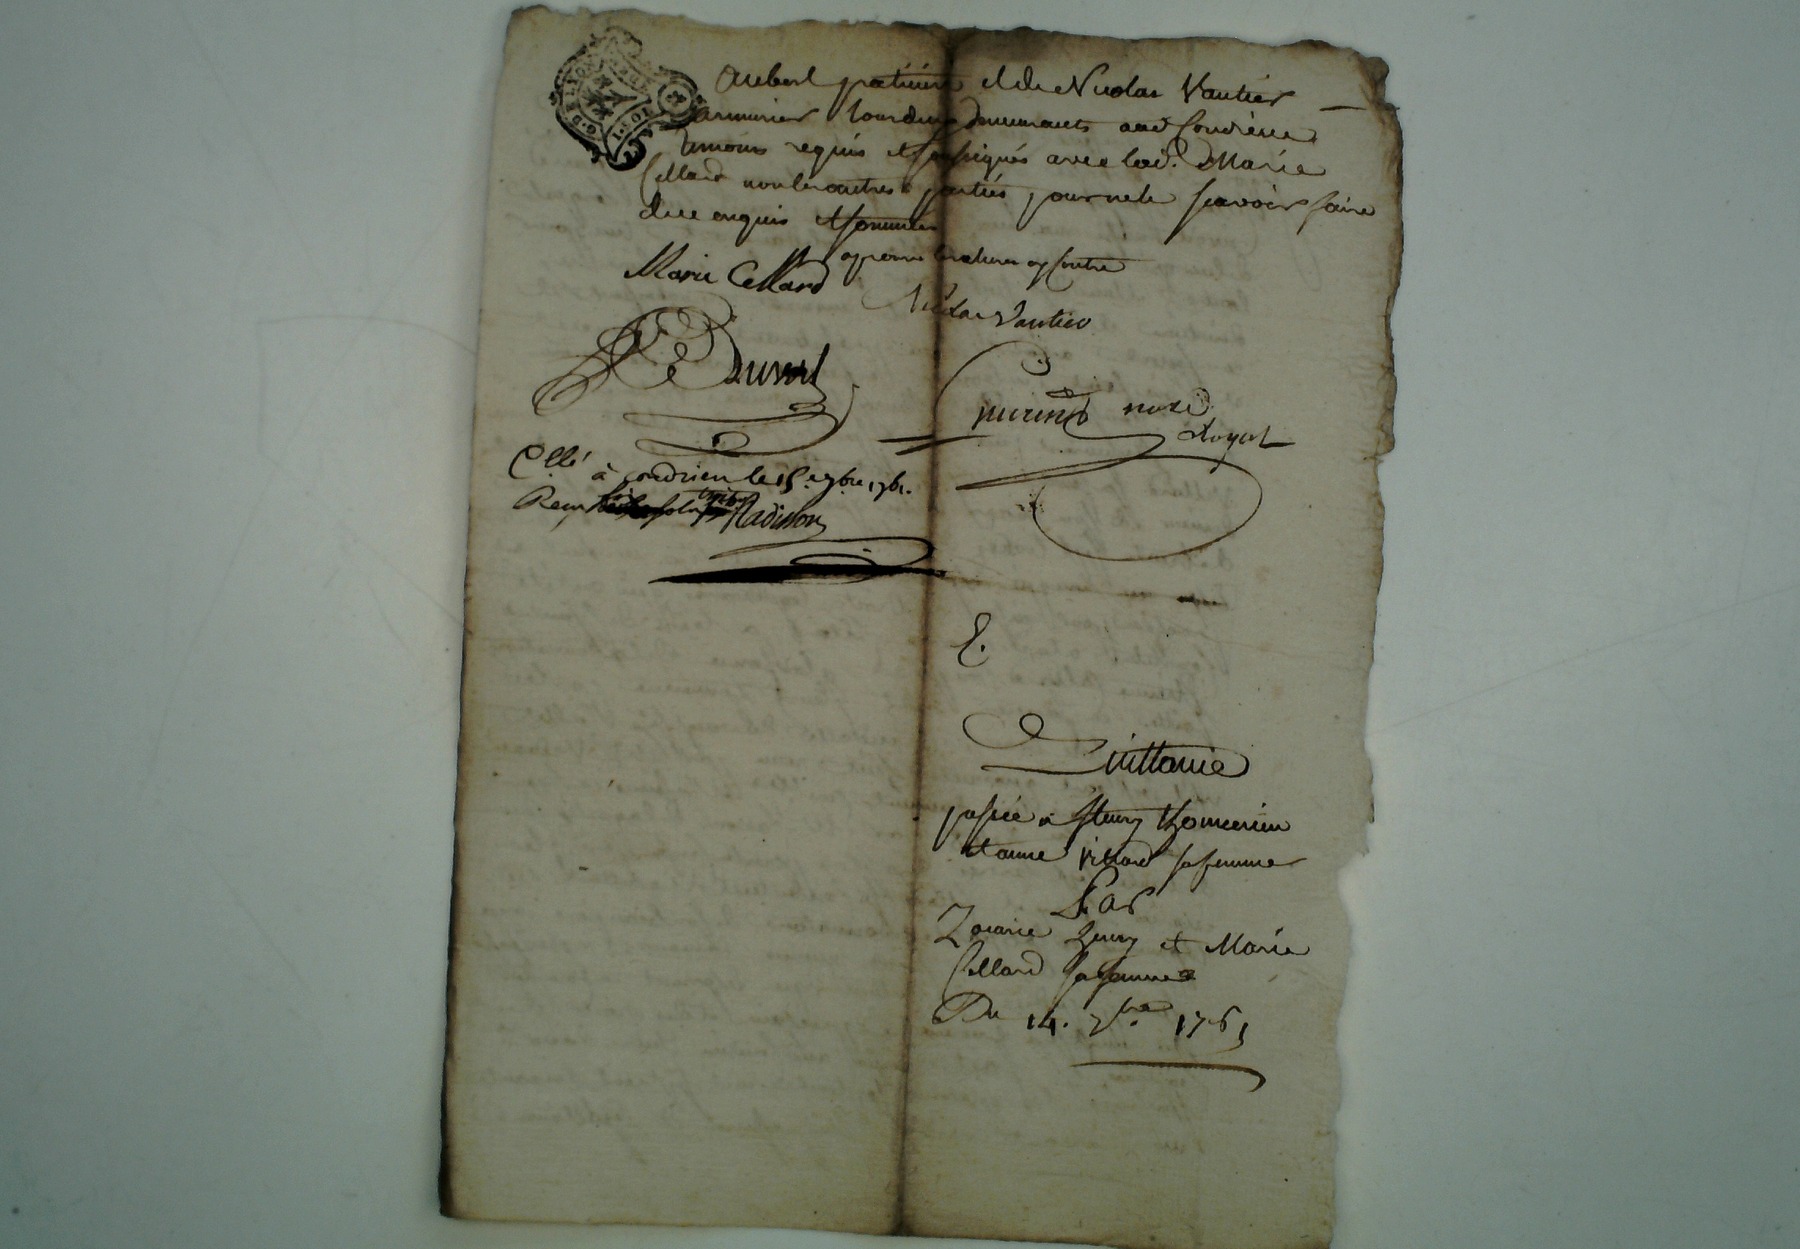 Aubert patissier et de Nicolas Vautier
armurier tous deux demeurants aud Condrieu
temoins requis et soussignés avec lad. Marie
Cellard non les autres parties pour ne le scavoir faire
de ce enquis et sommés
Marie Cellard
Nicolas Vautier
Duval
not. Royal
C.llé à Condrieu le 15. e 7bre 1761.
Reçu Radisson
E.
Quittance
passée a fleury
et anne Villard sa femme
Par
Zacarie fleury et Marie
Cellard sa femme
Du 14. 7bre 1761